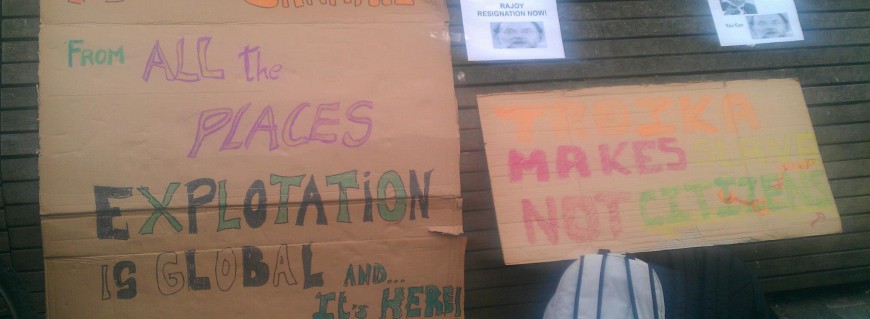 FROM ALL the
PLACES
EXPLOTATION
IS GLOBAL AND...
It's HERE!
RAJOY
RESIGNATION NOW!
TROIKA
MAKES SLAVE
NOT CITIZENS